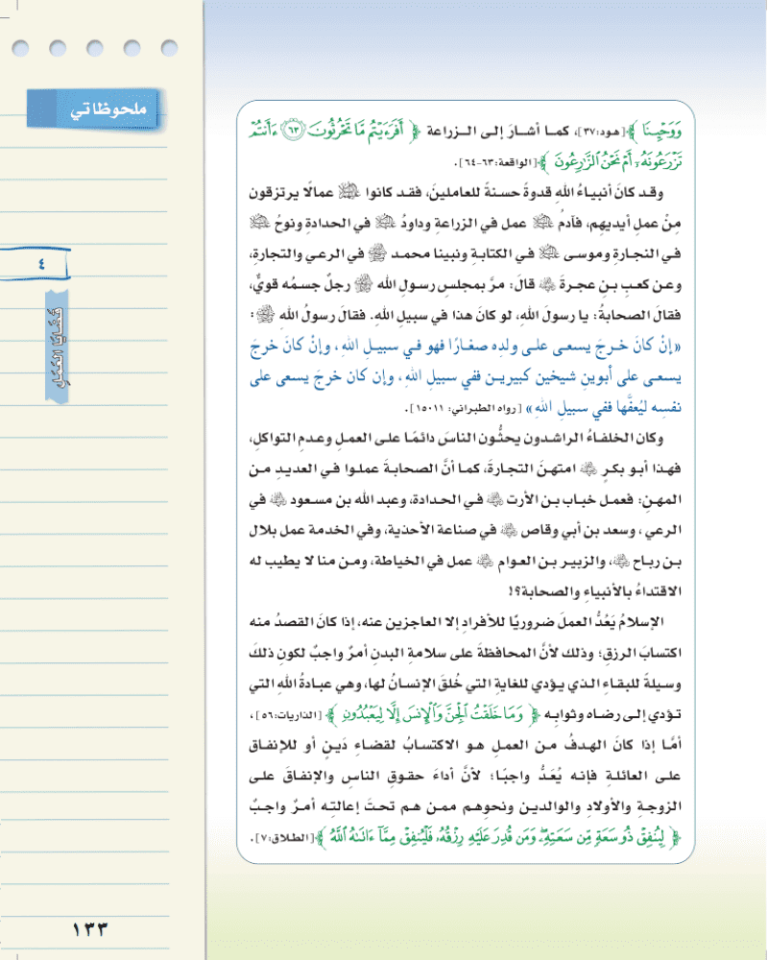 ملحوظاتي
٤
قضايا العمل
وَوَحْيِنَا ﴾[هود:٣٧]، كمـا أشـارَ إلى الـزراعة ﴿ أَفَرَءَيْتُم مَّا تَحْرُثُونَ ٦٣ ءَأَنتُمْ
تَزْرَعُونَهُۥٓ أَمْ نَحْنُ ٱلزَّٰرِعُونَ ﴾[الواقعة:٦٣-٦٤].
وقـد كانَ أنبيـاءُ اللهِ قدوةً حسـنةً للعاملينَ، فقـد كانوا ﷺ عمالًا يرتزقون
مِنْ عملِ أيديهِم، فآدمُ ﷺ عمل في الزراعةِ وداودُ ﷺ في الحدادةِ ونوحُ ﷺ
فـي النجـارةِ وموسـى ﷺ فـي الكتابـةِ ونبينا محمـد ﷺ في الرعـي والتجارةِ،
وعـن كعـبِ بـنِ عجـرةَ ﷺ قالَ: مرَّ بمجلسِ رسـولِ اللهِ ﷺ رجلٌ جسمُه قويٌّ،
فقالَ الصحابةُ: يا رسولَ اللهِ، لو كانَ هذا في سبيلِ اللهِ. فقالَ رسولُ اللهِ ﷺ:
«إنْ كانَ خـرجَ يسـعى علـى ولدِه صغـارًا فهو فـي سبيـلِ اللهِ، وإنْ كانَ خرجَ
يسـعـى على أبوينِ شيخينِ كبيريـن ففي سبيلِ اللهِ، وإن كان خرجَ يسعى على
نفسِه ليُعفَّها ففي سبيلِ اللهِ» [رواه الطبراني: ١٥٠١١].
وكان الخلفـاءُ الراشـدون يحثُّـون الناسَ دائمًـا علـى العمـلِ وعـدمِ التواكلِ،
فهـذا أبـو بكـرٍ ﷺ امتهـنَ التجـارةَ، كمـا أنَّ الصحابـةَ عملـوا فـي العديـدِ مـن
المهـنِ: فعمـل خباب بـن الأرت ﷺ فـي الحـدادة، وعبد الله بن مسـعود ﷺ في
الرعي ، وسعد بن أبي وقاص ﷺ في صناعة الأحذية، وفي الخدمة عمل بلال
بـن رباح ﷺ، والزبيـر بـن العـوام ﷺ عمل في الخياطة، ومـن منا لا يطيب له
الاقتداءُ بالأنبياءِ والصحابة؟!
الإسلامُ يَعُدُّ العملَ ضروريًا للأفرادِ إلا العاجزين عنه، إذا كانَ القصدُ منه
اكتسابَ الرزقِ؛ وذلك لأنَّ المحافظةَ على سلامةِ البدنِ أمرٌ واجبٌ لكونِ ذلكَ
وسيلةً للبقـاءِ الـذي يـؤدي للغايةِ التي خُلقَ الإنسـانُ لها، وهي عبـادةُ اللهِ التي
تـؤدي إلـى رضـاه وثوابِـه ﴿ وَمَا خَلَقْتُ ٱلْجِنَّ وَٱلْإِنسَ إِلَّا لِيَعْبُدُونِ ﴾ [الذاريات:٥٦]،
أمَّـا إذا كانَ الهـدفُ مـن العمـلِ هـو الاكتسـابُ لقضـاءِ دَيـنٍ أو للإنفـاق
علـى العائلـةِ فإنـه يُعَـدُّ واجبًـا؛ لأنَّ أداءَ حقـوقِ الناسِ والإنفـاقَ علـى
الزوجـةِ والأولادِ والوالديـن ونحوهـم ممـن هـم تحـتَ إعالتِـه أمـرٌ واجـبٌ
﴿ لِيُنفِقْ ذُو سَعَةٍ مِّن سَعَتِهِۦ وَمَن قُدِرَ عَلَيْهِ رِزْقُهُۥ فَلْيُنفِقْ مِمَّآ ءَاتَىٰهُ ٱللَّهُ ﴾[الطلاق:٧].
١٣٣